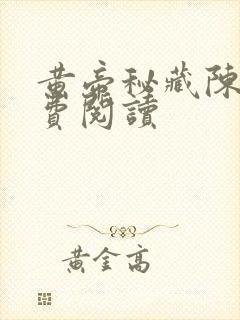 黃帝秘藏陳
費閱讀
黃金高